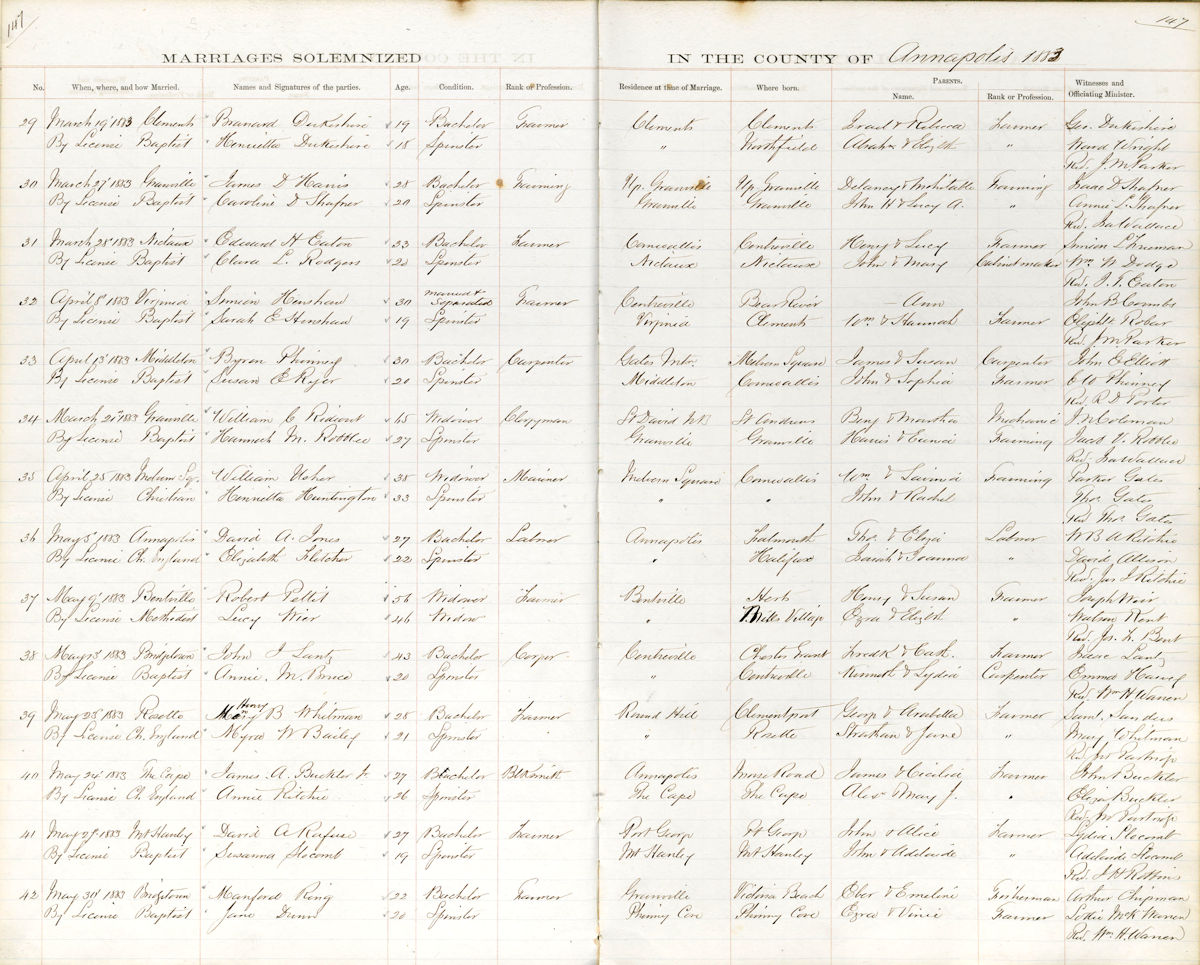 147
147
MARRIAGES SOLEMNIZED IN THE COUNTY OF Annapolis 1883
No. When, where, and how Married. Names and Signatures of the parties. Age. Condition. Rank or Profession. Residence at time of Marriage. Where born. PARENTS. Name. Rank or Profession. Witnesses and Officiating Minister.
29 March 19th 1883 Clements Branard Dukeshire 19 Bachelor Farmer Clements Clements Israel & Rebecca Farmer Geo. Dukeshire
By License Baptist Henrietta Dukeshire 18 Spinster " Northfield Abrahm & Elizth " Ward Wright
Rev. J. M. Parker
30 March 27th 1883 Granville James D Harris 28 Bachelor Farming Up. Granville Up. Granville Delancy & Mehitable Farming Isaac D. Shafner
By License Baptist Caroline D Shafner 20 Spinster Granville Granville John H & Lucy A. " Annie L. Shafner
Rev. Ira Wallace
31 March 28th 1883 Nictaux Edward H Eaton 23 Bachelor Farmer Cornwallis Centreville Henry & Lucy Farmer Simion L Freeman
By License Baptist Clara L. Rodgers 20 Spinster Nictaux Nictaux John & Mary Cabinet maker Wm N Dodge
Rev. J. T. Eaton
32 April 8th 1883 Virginia Simeon Henshaw 30 married & Separated Farmer Centreville Bear River — Ann John B Combs
By License Baptist Sarah E Henshaw 19 Spinster Virginia Clements Wm & Hannah Farmer Elizth Robar
Rev. J M Parker
33 April 13th 1883 Middleton Byron Phinney 30 Bachelor Carpenter Gates Mtn. Melvern Square James & Susan Carpenter John E Elliott
By License Baptist Susan E Ryer 20 Spinster Middleton Cornwallis John & Sophia Farmer C W Phinney
Rev. R. D. Porter
34 March 21st 1883 Granville William C Rideout 65 Widower Clergyman St David NB St Andrews Benj & Marsha Mechanic J. W Coleman
By License Baptist Hannah M. Robblee 27 Spinster Granville Granville Harris & Eunice Farming Jacob V. Robblee
Rev. Ira Wallace
35 April 25th 1883 Melvern Sq. William Usher 38 Widower Mariner Melvern Square Cornwallis Wm & Lavinia Farming Parker Gates
By License Christian Henrietta Huntington 33 Spinster " " John & Rachel Thos. Gates
Rev Thos. Gates
36 May 5th 1883 Annapolis David A. Jones 27 Bachelor Labourer Annapolis Falmouth Tho. & Eliza Labourer W B A Ritchie
By License Ch. England Elizabeth Fletcher 22 Spinster " Halifax Josiah & Joanna " David Allison
Rev. Jas J Ritchie
37 May 9th 1883 Bentville Robert Pettit 56 Widower Farmer Bentville Herts Henry & Susan Farmer Joseph Weir
By License Methodist Lucy Wier 46 Widow " Mills Village Ezra & Elizth " Watson Kent
Rev. Jos. L. Bent
38 May 15th 1883 Bridgetown John J Lantz 43 Bachelor Cooper Centreville Chester Grant Fredk & Cath. Farmer Isaac Lantz
By License Baptist Annie M. Bruce 20 Spinster " Centreville Kenneth & Lydia Carpenter Emma Harvey
Rev. Wm H Warren
39 May 23d 1883 Rosette Henry B Whitman 28 Bachelor Farmer Round Hill Clementsport George & Arabella Farmer Saml. Sanders
By License Ch. England Myra W Bailey 21 Spinster " Rosette Strahan & Jane " Mary Whitman
40 May 24th 1883 The Cape James A. Buckler Jr 27 Bachelor Blksmith Annapolis Morse Road James & Cecilia Farmer John Buckler
By License Ch. England Annie Ritchie 26 Spinster The Cape The Cape Alexr & Mary J. " Eliza Buckler
41 May 29th 1883 Mt Hanley David A Rafuse 27 Bachelor Farmer Port George Pt George John & Alice Farmer Lydia Slocomb
By License Baptist Susanna Slocomb 19 Spinster Mt Hanley Mt Hanley John & Adelaide " Adelaide Slocomb
42 May 31st 1883 Bridgetown Manford Ring 22 Bachelor Farmer Granville Victoria Beach Eber & Emeline Fisherman Arthur Chipman
By License Baptist Jane Dunn 20 Spinster Phinny Cove Phinny Cove Ezra & Vinie Farmer Lottie McK Warren
Rev. Wm. H. Warren